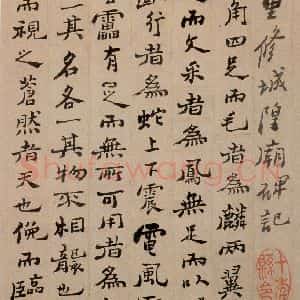 重修城隍廟碑記
角四足而毛者為麟兩翼
足而文采者為鳳無足而以
行者為蛇上下震電風
雷有足而無所可用者為
一其名各一其物不相襲也
而視之蒼然者天也俛而臨
Shufawang.CN